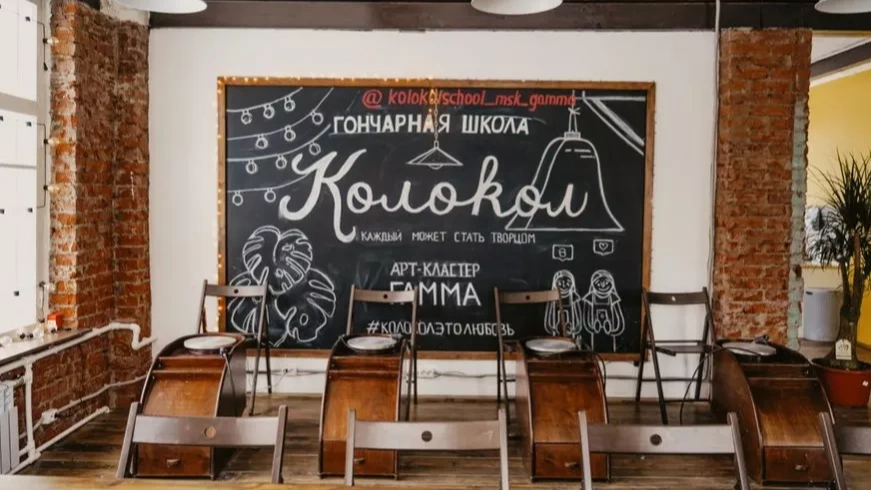 @ kolokolschool_msk_gamma
ГОНЧАРНАЯ ШКОЛА
Колокол
КАЖДЫЙ МОЖЕТ СТАТЬ ТВОРЦОМ
АРТ-КЛАСТЕР
ГАММА
#КОЛОКОЛЭТОЛЮБОВЬ